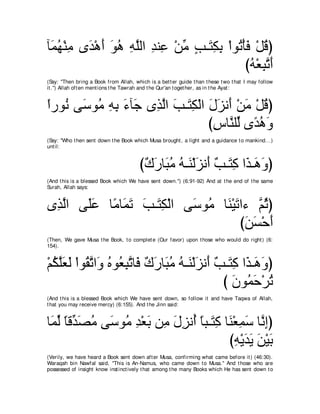 (قُلْ فَأْتُواْ بِكِتَـبٍ مِّنْ عِندِ اللَّهِ هُوَ أَهْدَى مِنْهُمَآ
أَتَّبِعْهُ)
(Say: "Then bring a Book from Allah, which is a better guide than these two that I may follow
it.'') Allah often mentions the Tawrah and the Qur'an together, as in the Ayat:
(قُلْ مَنْ أَنزَلَ الْكِتَـبَ الَّذِى جَآءَ بِهِ مُوسَى نُوراً
وَهُدًى لِّلنَّاسِ)
(Say: "Who then sent down the Book which Musa brought, a light and a guidance to mankind...)
until:
(وَهَـذَا كِتَـبٌ أَنزَلْنَـهُ مُبَارَكٌ)
(And this is a blessed Book which We have sent down.'') (6:91-92) And at the end of the same
Surah, Allah says:
(ثُمَّ ءاتَيْنَا مُوسَى الْكِتَـبَ تَمَامًا عَلَى الَّذِى
أَحْسَنَ)
(Then, We gave Musa the Book, to complete (Our favor) upon those who would do right) (6:
154).
(وَهَـذَا كِتَـبٌ أَنزَلْنَـهُ مُبَارَكٌ فَاتَّبِعُوهُ وَاتَّقُواْ لَعَلَّكُمْ
تُرْحَمُونَ )
(And this is a blessed Book which We have sent down, so follow it and have Taqwa of Allah,
that you may receive mercy) (6:155). And the Jinn said:
(إِنَّا سَمِعْنَا كِتَـباً أُنزِلَ مِن بَعْدِ مُوسَى مُصَدِّقاً لِّمَا
بَيْنَ يَدَيْهِ)
(Verily, we have heard a Book sent down after Musa, confirming what came before it) (46:30).
Waraqah bin Nawfal said, "This is An-Namus, who came down to Musa.'' And those who are
possessed of insight know instinctively that among the many Books which He has sent down to